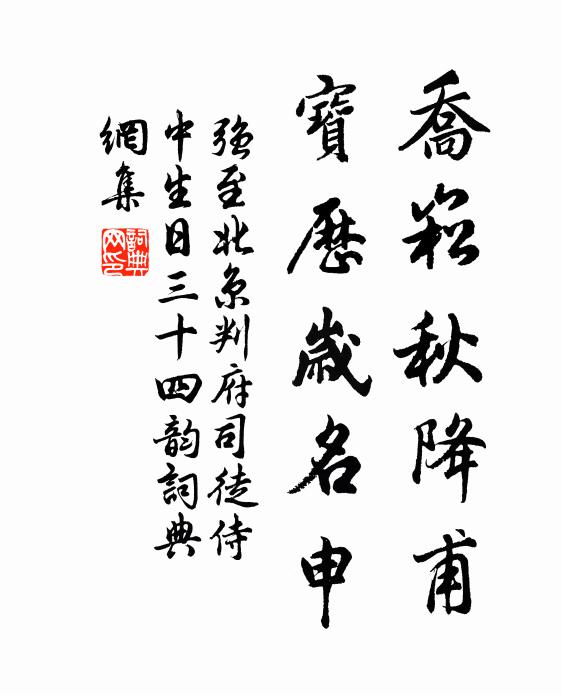 喬崧秋降甫
寶歷歲名申
強至北京判府司徒侍
中生日三十四韵詞典
網集
詞典網印